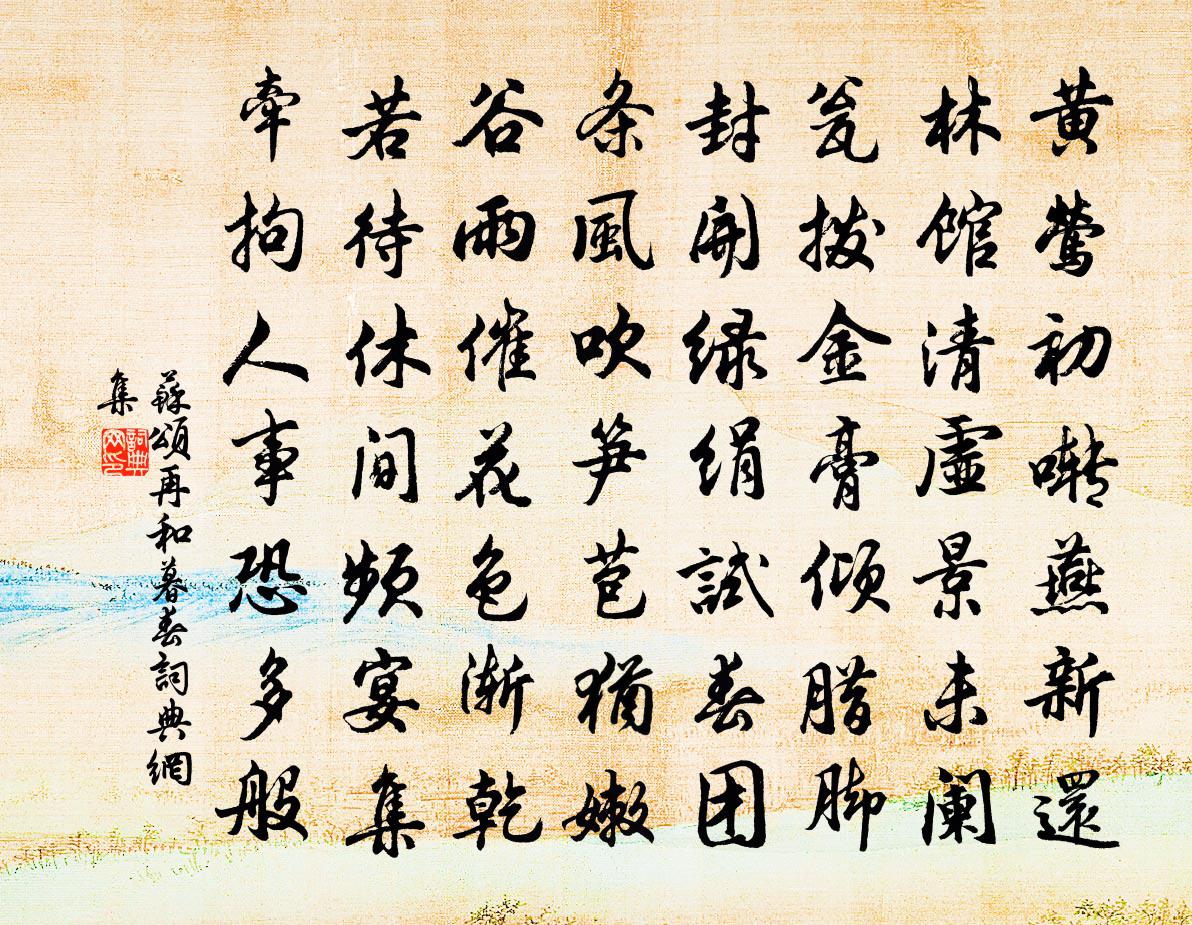 黄鶯初囀燕新還
林館清虛景未阑
瓮拨金膏倾腊脚
封開绿绢試春团
条風吹笋苞猶嫩
谷雨催花色渐乾
若待休閒频宴集
牽拘人事恐多般
蘇頌再和暮春詞典網
集
詞典
网印